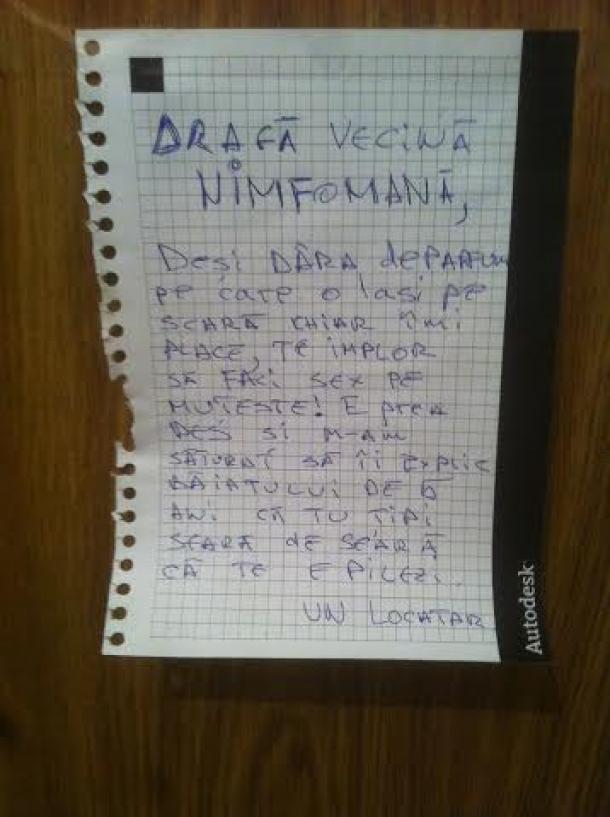 DRAGĂ VECINĂ
NIMFOMANĂ,
Deși DÂRA de PARFUM
pe care o lași pe
SCARĂ CHIAR îmi
PLACE, TE IMPLOR
SĂ FACI SEX PE
MUTEȘTE! E prea
DES și M-AM
SĂTURAT SĂ îi EXPLIC
BĂIATULUI DE 6
ANI CĂ TU ȚIPI
SEARĂ de SEARĂ
CĂ TE EPILEZI.
UN LOCATAR
Autodesk